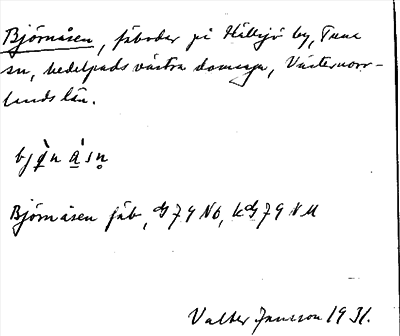 Björnåsen, fäbodar på Hällsjö by, Tuna
sn, Medelpads västra domsaga, Västernorr-
lands län.
bjö̀n å̀sn̥
Björnåsen fäb, G 79 Nb, kG 79 NM
Valter Jansson 1931.